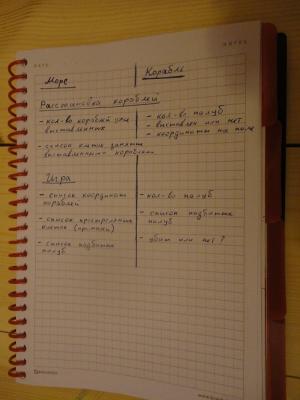 Море
Корабль
Расстановка кораблей
- кол-во кораблей уже
выставленных
- список клеток занятых
выставленными кораблями
- кол-во палуб
- выставлен или нет
- координаты на поле
Игра
- список координат
кораблей
- список простреленных
клеток (промахи)
- список подбитых
палуб
- кол-во палуб
- список подбитых
палуб
- убит или нет?